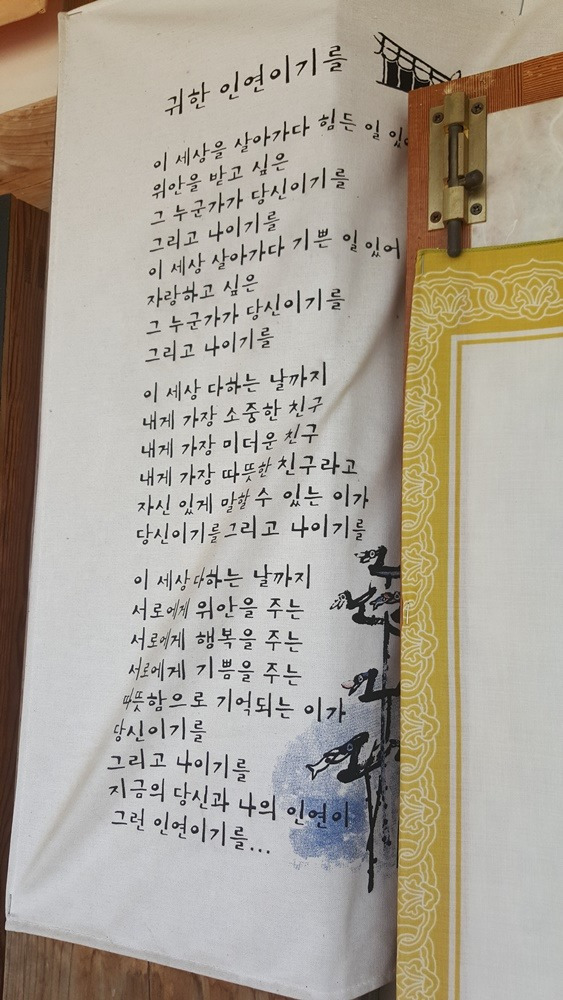 귀한 인연이기를
이 세상을 살아가다 힘든 일 있
위안을 받고 싶은
그 누군가가 당신이기를
그리고 나이기를
이 세상 살아가다 기쁜 일 있어
자랑하고 싶은
그 누군가가 당신이기를
그리고 나이기를
이 세상 다하는 날까지
내게 가장 소중한 친구
내게 가장 미더운 친구
내게 가장 따뜻한 친구라고
자신 있게 말할 수 있는 이가
당신이기를그리고 나이기를
이 세상다하는 날까지
서로에게 위안을 주는
서로에게 행복을 주는
서로에게 기쁨을 주는
따뜻함으로 기억되는 이가
당신이기를
그리고 나이기를
지금의 당신과 나의 인연이
그런 인연이기를...